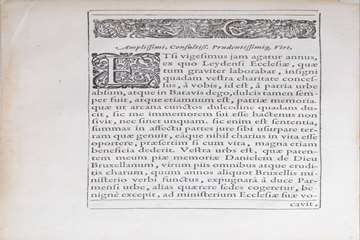 Amplissimi, Consultiss. Prudentissimiq, Viri,
ETsi vigesimus jam agatur annus,
ex quo Leydensi Ecclesiæ, quæ
tum graviter laborabat, insigni
quadam vestra charitate conces-
sus, à vobis, id est, à patria urbe
absum, atque in Batavis dego, dulcis tamen sem-
per fuit, atque etiamnum est, patriæ memoria.
quæ ut arcana cunctos dulcedine quadam du-
cit, sic me immemorem sui esse hactenus non
sivit, nec sinet unquam. Sic enim est sententia,
summas in affectu partes jure sibi usurpare ter-
ram quæ genuit, eaque nihil charius in vita esse
oportere, præsertim si cum vita, magna etiam
beneficia dederit. Vestra urbs est, quæ paren-
tem meum piæ memoriæ Danielem de Dieu
Bruxellanum, virum puis omnibus atque erudi-
tis charum, quum annos aliquot Bruxellis mi-
nisterio verbi functus, expugnarâ à duce Par-
mensi urbe, alias quærere sedes cogeretur, be-
nignè excepit, ad ministerium Ecclesiæ suæ vo-
cavit,